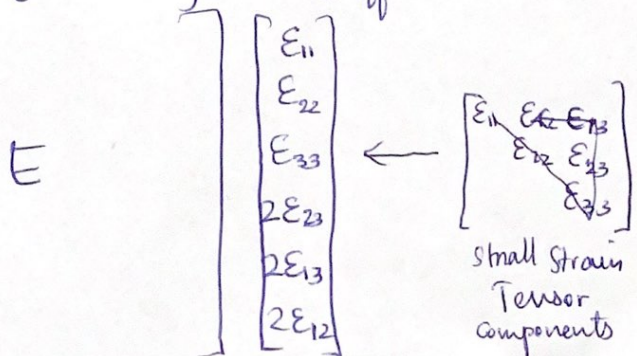 E
ε11
ε22
ε33
2ε23
2ε13
2ε12
←
ε11 ε12 ε13
ε22 ε23
ε33
Small Strain
Tensor
Components